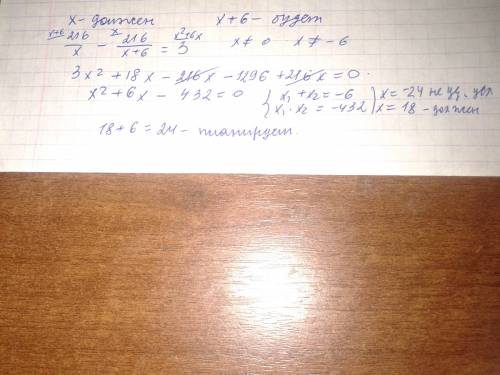 x - должен x + 6 - будет
x+6 216/x - x 216/(x+6) = x²+6x 3 x ≠ 0 x ≠ -6
3x² + 18x - 216x - 1296 + 216x = 0.
x² + 6x - 432 = 0 { x₁ + x₂ = -6 x₁ · x₂ = -432 } x = -24 не уд. усл. x = 18 - должен
18 + 6 = 24 - планирует.